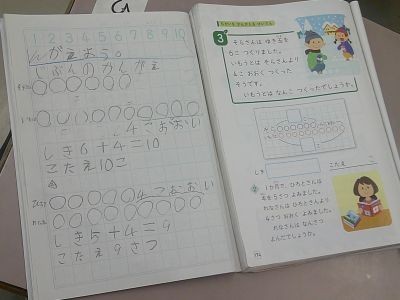 1 2 3 4 5 6 7 8 9 10
んがえよう。
じぶんのかんがえ
4こおおい
しき6+4=10
こたえ10こ
4つおおい
しき5+4=9
こたえ9さつ
3
そらさんは ゆき玉を
6こ つくりました。
いもうとは そらさんより
4こ おおく つくった
そうです。
いもうとは なんこ つくったでしょうか。
しき
こたえ こ
2
1か月で、ひろとさんは
本を 5さつ よみました。
れなさんは ひろとさんより
4さつ おおく よみました。
れなさんは なんさつ
よんだでしょうか。